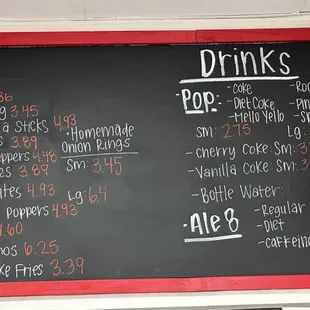 36
g 3.45
a Sticks 4.93
s 3.89
oppers 4.48
es 3.89
ates 4.93
poppers 4.93
4.60
hos 6.25
ke Fries 3.39
·Homemade
Onion Rings
Sm: 3.45
Lg: 6.4
Drinks
·Pop:
-Coke
-Diet Coke
-Mello Yello
- Ro
- Pi
- S
Sm: 2.75
Lg:
-Cherry Coke Sm: 3
-Vanilla Coke Sm: 3
-Bottle Water:
·Ale 8
-Regular
-Diet
-Caffeine